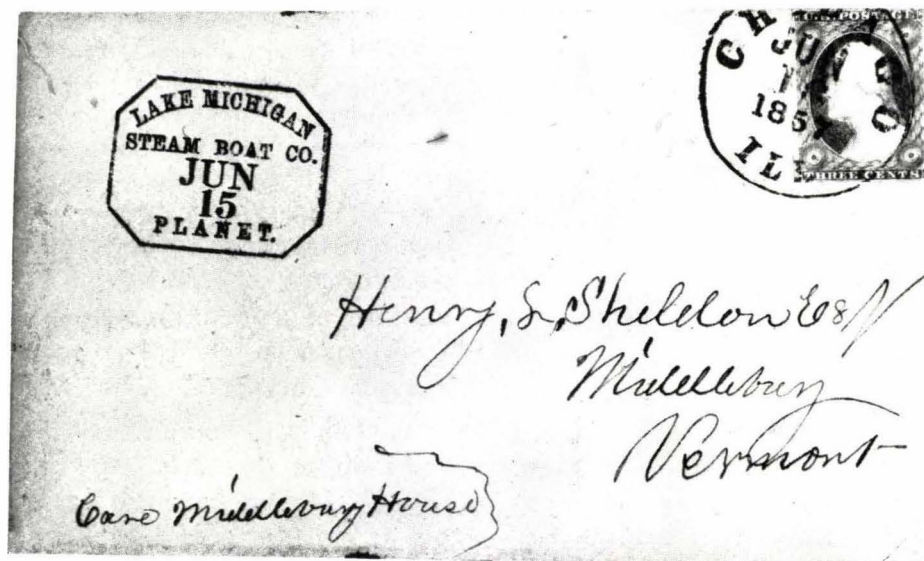 LAKE MICHIGAN
STEAM BOAT CO.
JUN
15
PLANET.
U.S. POSTAGE
THREE CENTS
JU
185
ILL
Henry, S, Sheldon Esq
Middlebury
Vermont
Care Middlebury House